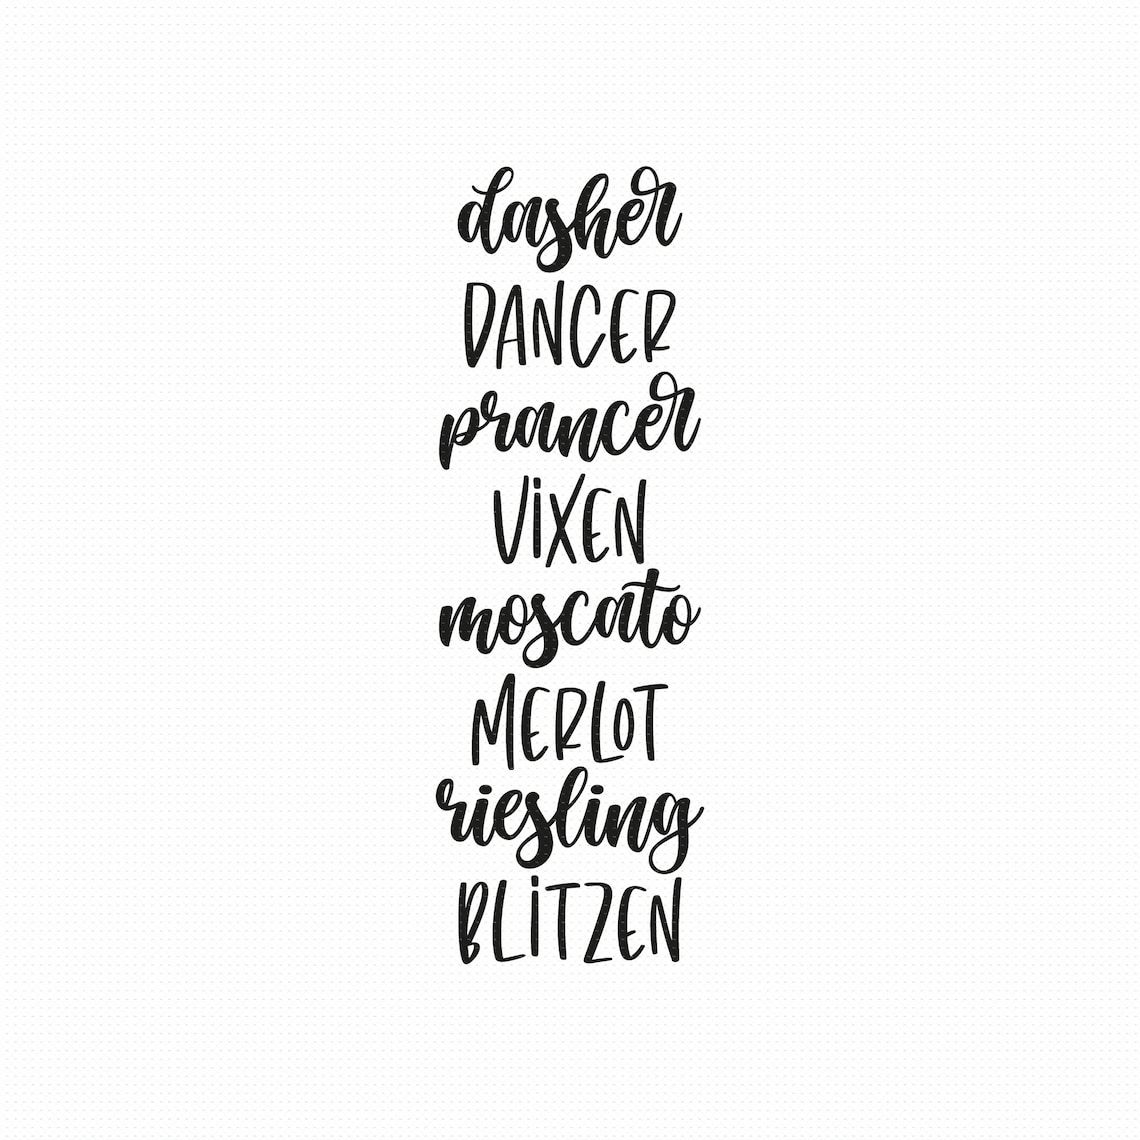 dasher
DANCER
prancer
ViXEN
moscato
MERLOT
riesling
BLiTZEN